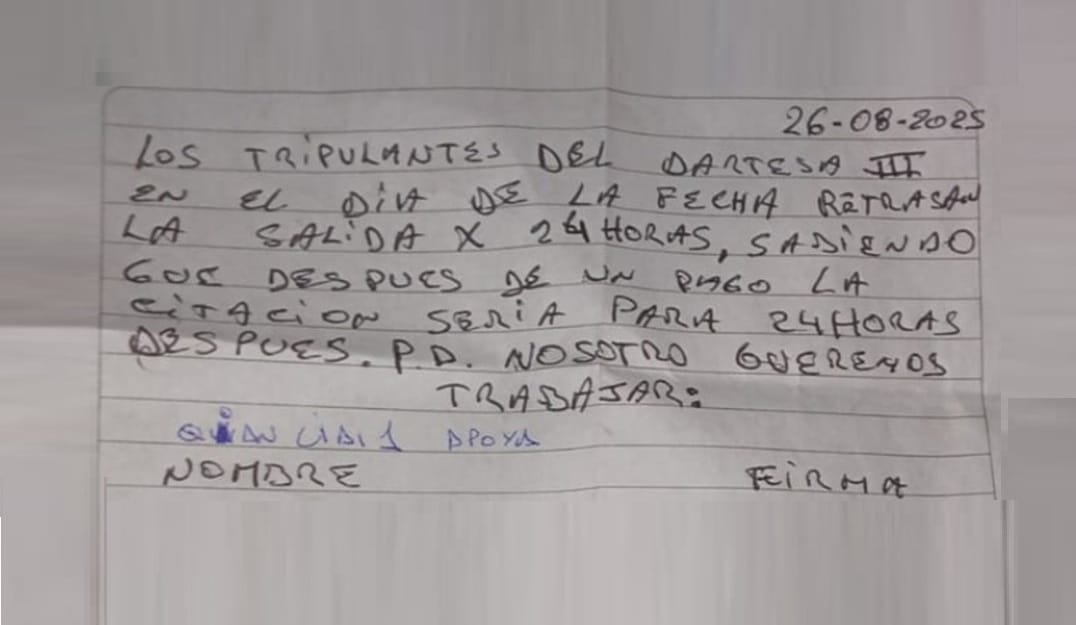 26-08-2025
LOS TRIPULANTES DEL DARTESA III
EN EL DIA DE LA FECHA RETRASAN
LA SALIDA X 24 HORAS, SABIENDO
QUE DESPUES DE UN PAGO LA
CITACION SERIA PARA 24 HORAS
DESPUES. P.D. NOSOTRO QUEREMOS
TRABAJAR:
APOYA
NOMBRE FEIRMA